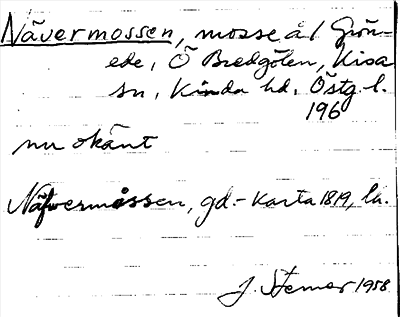 Nävermossen, mosse å/ Grön-
ede, Ö Bredgölen, Kisa
sn, Kinda hd, Östg. l.
196
nu okänt
Näfvermossen, gd.-karta 1819, la.
J. Stemer 1958